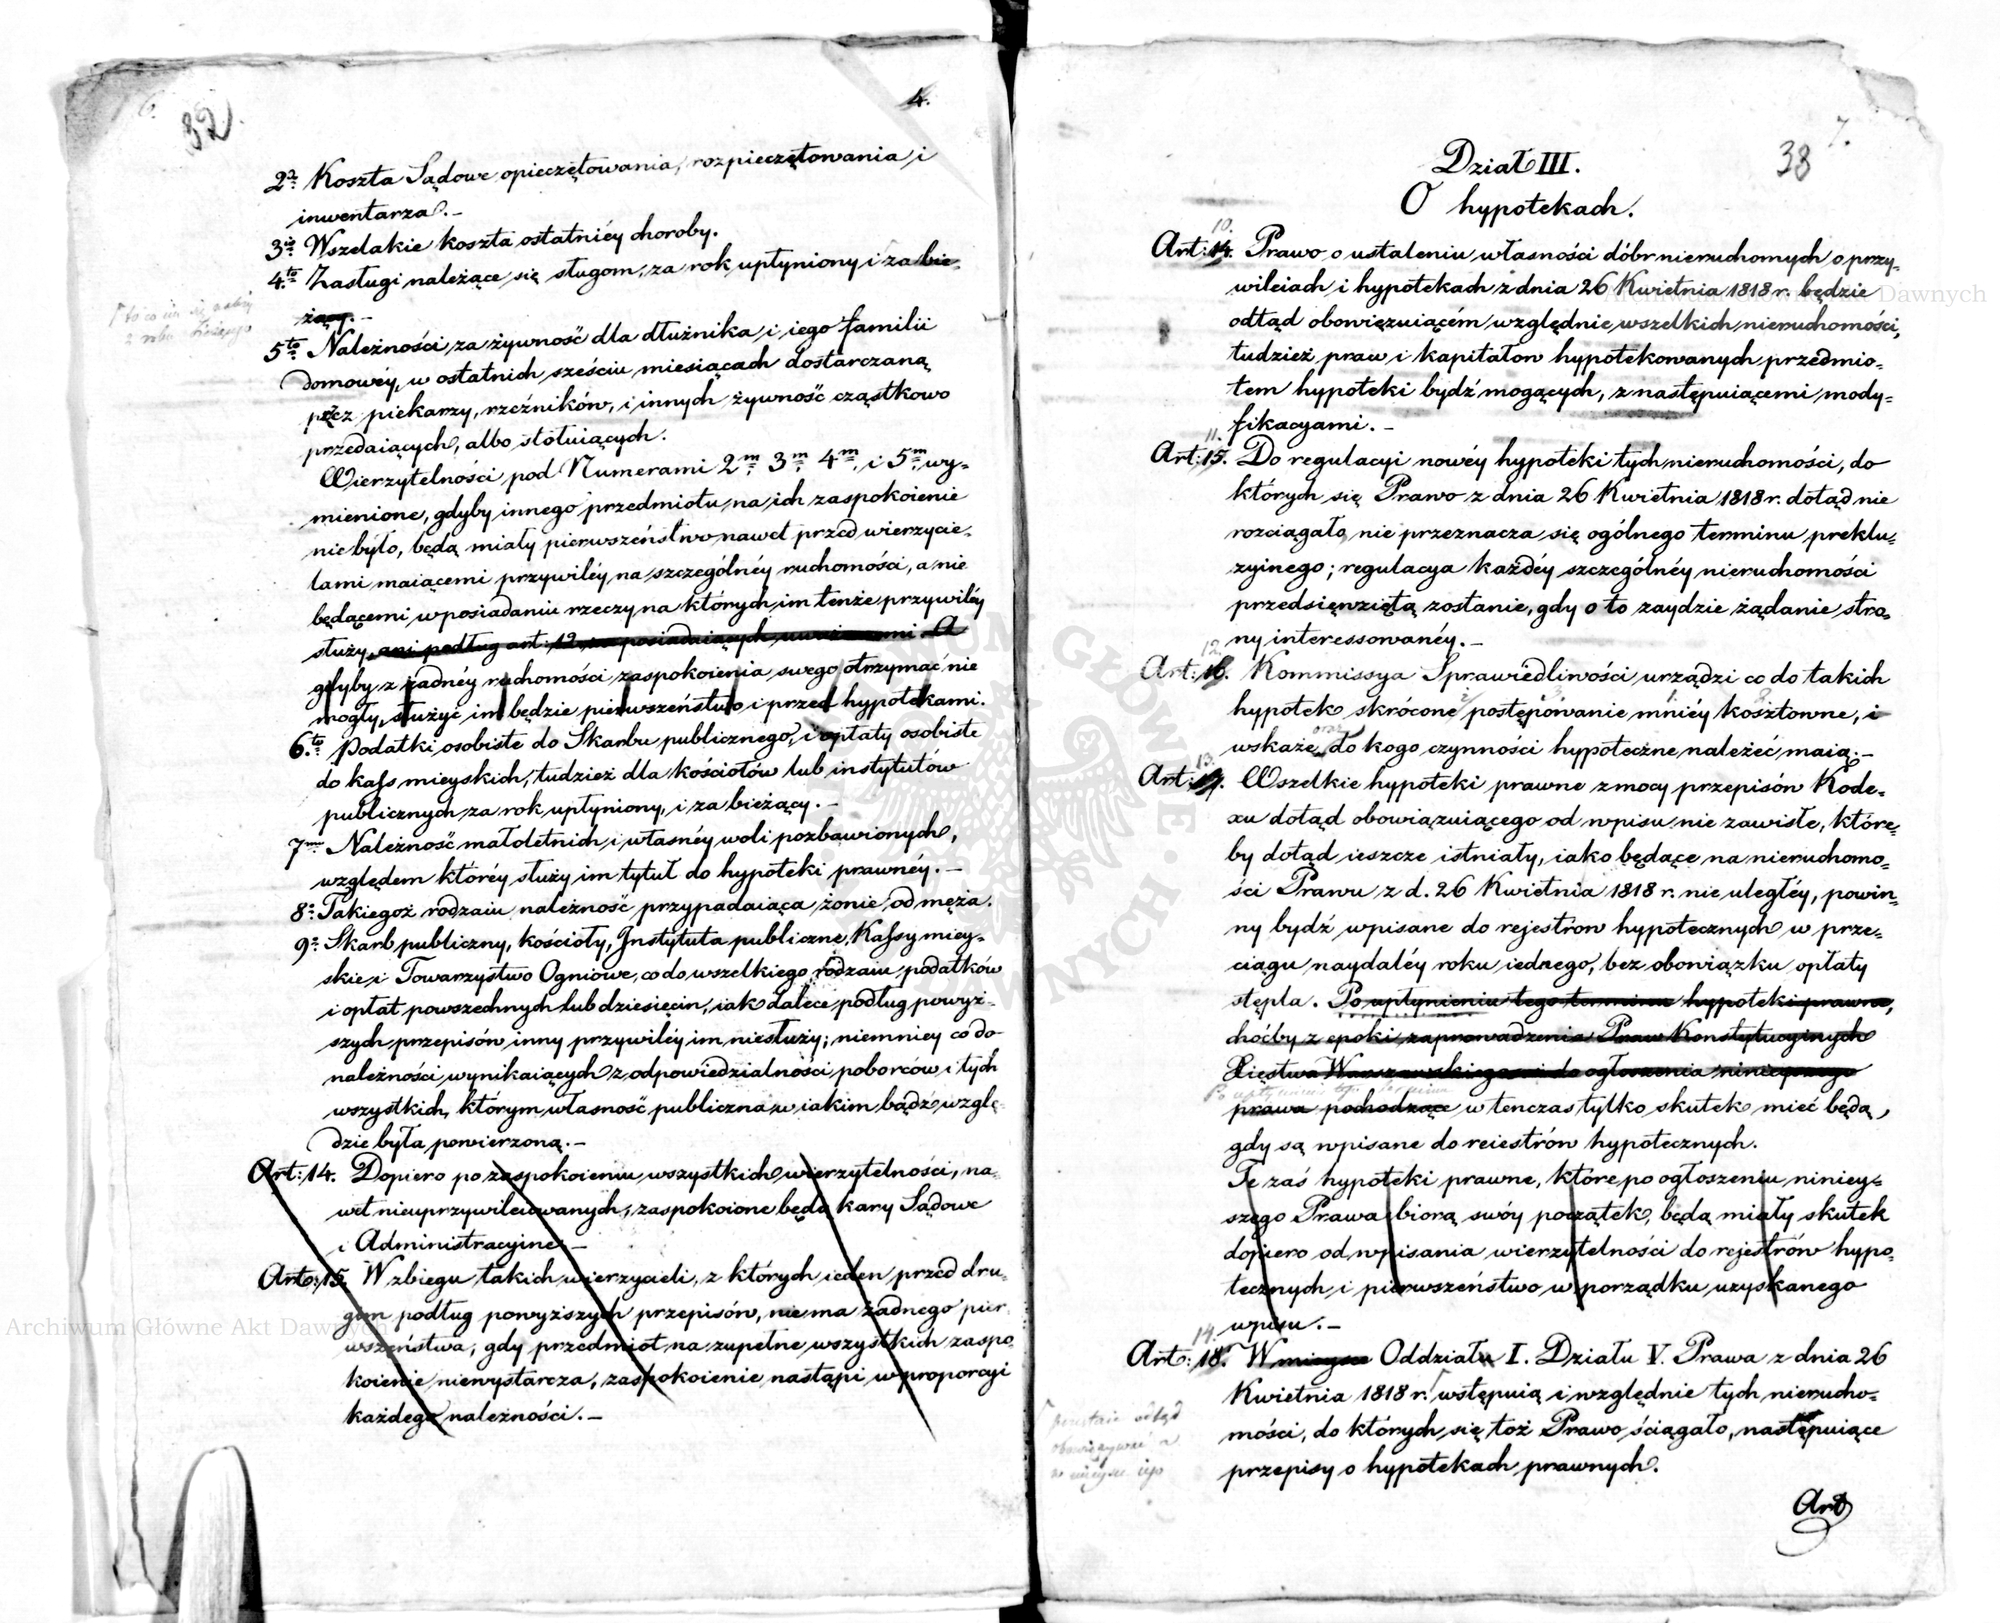 32.
4.
2º Koszta Sądowe opieczętowania, rozpieczętowania, i
inwentarza.–
3º Wszelakie koszta ostatniéy choroby.
4to Zasługi należące się sługom, za rok upłyniony i za bie-
żący.–
5to Należności, za żywność dla dłużnika, i iego familii
domowéy, w ostatnich sześciu miesiącach dostarczaną
przez piekarzy, rzeźników, i innych żywność cząstkowo
przedaiących, albo stołuiących.
Wierzytelności pod Numerami 2m 3m 4m, i 5m, wy-
mienione, gdyby innego przedmiotu na ich zaspokoienie
nie było, będą miały pierwszeństwo nawet przed wierzycie-
lami maiącemi przywiléy na szczególnéy ruchomości, a nie
będącemi w posiadaniu rzeczy na których im tenże przywiléy
służy, ani podług art: 12, za posiadaiących uważanemi. A
gdyby z żadnéy ruchomości zaspokoienia swego otrzymać nie
mogły, służyć im będzie pierwszeństwo i przed hypotekami.
6to Podatki osobiste do Skarbu publicznego, i opłaty osobiste
do kass mieyskich, tudzież dla kościołów lub instytutów
publicznych, za rok upłyniony, i za bieżący.–
7mo Należność małoletnich, i własnéy woli pozbawionych,
względem któréy służy im tytuł do hypoteki prawnéy.–
8º Takiegoż rodzaiu należność przypadaiąca żonie, od męża.
9º Skarb publiczny, kościoły, Instytuta publiczne, Kassy miey-
skie i Towarzystwo Ogniowe, co do wszelkiego rodzaiu, podatków
i opłat powszechnych lub dziesięcin, iak dalece podług powyż-
szych przepisów inny przywiléy im nie służy; niemniey co do
należności wynikaiących z odpowiedzialności poborców i tych
wszystkich, którym własność publiczna w iakim bądź wzglę-
dzie była powierzoną.–
Art: 14. Dopiero po zaspokoieniu wszystkich wierzytelności, na-
wet nieuprzywileiowanych, zaspokoione będą kary Sądowe
i Administracyjne.–
Art: 15. W zbiegu takich wierzycieli, z których ieden przed dru-
gim podług powyższych przepisów, nie ma żadnego pier-
wszeństwa, gdy przedmiot na zupełne wszystkich zaspo-
koienie niewystarcza, zaspokoienie nastąpi w proporcyi
każdego należności.–
38
7.
Dział III.
O hypotekach.
10.
Art: 14. Prawo o ustaleniu własności dóbr nieruchomych o przy-
wileiach i hypotekach z dnia 26 Kwietnia 1818 r. będzie
odtąd obowięzuiącém względnie wszelkich nieruchomości,
tudzież praw i kapitałow hypotekowanych przedmio-
tem hypoteki bydź mogących, z następuiącemi mody-
fikacyami.–
11.
Art: 15. Do regulacyi nowéy hypoteki tych nieruchomości, do
których się Prawo z dnia 26 Kwietnia 1818 r. dotąd nie
rozciągało, nie przeznacza się ogólnego terminu preklu-
zyinego; regulacya każdéy szczególnéy nieruchomości
przedsięwziętą zostanie, gdy o to zaydzie żądanie stro-
ny interessowanéy.–
12.
Art: 16. Kommissya Sprawiedliwości urządzi co do takich
hypotek skrócone postępowanie mniéy kosztowne, i
wskaże, oraz do kogo czynności hypoteczne należeć maią.–
13.
Art: 17. Wszelkie hypoteki prawne z mocy przepisów Kode-
xu dotąd obowiązuiącego od wpisu nie zawisłe, które-
by dotąd ieszcze istniały, iako będące na nieruchomo-
ści Prawu z d. 26 Kwietnia 1818 r. nie uległéy, powin-
ny bydź wpisane do rejestrow hypotecznych w prze-
ciągu naydaléy roku iednego, bez obowiązku opłaty
stępla. Po upłynieniu tego terminu hypoteki prawne,
choćby z epoki zaprowadzenia Praw Konstytucyinych
Xięstwa Warszawskiego aż do ogłoszenia ninieyszego
prawa pochodzące w tenczas tylko skutek mieć będą,
gdy są wpisane do reiestrów hypotecznych.
Te zaś hypoteki prawne, które po ogłoszeniu niniey-
szego Prawa biorą swóy początek, będą miały skutek
dopiero od wpisania wierzytelności do rejestrów hypo-
tecznych i pierwszeństwo w porządku uzyskanego
wpisu.–
14.
Art: 18. W mieysce Oddziału I. Działu V. Prawa z dnia 26
Kwietnia 1818 r. wstępuią i względnie tych nierucho-
mości, do których się toż Prawo ściągało, następuiące
przepisy o hypotekach prawnych.
przestaie odtąd
obowięzywać a
w mieysce iego
Art
Archiwum Główne Akt Dawnych
Archiwum Główne Akt Dawnych